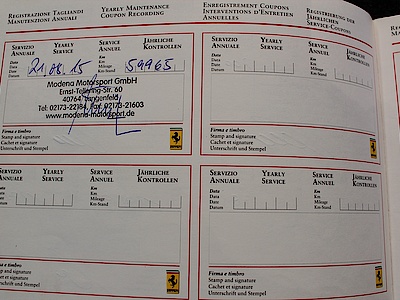 REGISTRAZIONE TAGLIANDI
MANUTENZIONI ANNUALI
YEARLY MAINTENANCE
COUPON RECORDING
ENREGISTREMENT COUPONS
INTERVENTIONS D'ENTRETIEN
ANNUELLES
REGISTRIERUNG DER
JÄHRLICHEN
SERVICE-COUPONS
SERVIZIO
ANNUALE
YEARLY
SERVICE
SERVICE
ANNUEL
JÄHRLICHE
KONTROLLEN
Data
Date
Date
Datum
21.08.15
Km
Km
Mileage
Km-Stand
59965
Modena Motorsport GmbH
40764 Langenfeld
www.modena-motorsport.de
Firma e timbro
Stamp and signature
Cachet et signature
Unterschrift und Stempel
SERVIZIO
ANNUALE
YEARLY
SERVICE
SERVICE
ANNUEL
JÄHRLICHE
KONTROLLEN
Data
Date
Date
Datum
Km
Km
Mileage
Km-Stand
Firma e timbro
Stamp and signature
Cachet et signature
Unterschrift und Stempel
SERVIZIO
ANNUALE
YEARLY
SERVICE
SERVICE
ANNUEL
JÄHRLICHE
KONTROLLEN
Data
Date
Date
Datum
Km
Km
Mileage
Km-Stand
Firma e timbro
Stamp and signature
Cachet et signature
Unterschrift und Stempel
SERVIZIO
ANNUALE
YEARLY
SERVICE
SERVICE
ANNUEL
JÄHRLICHE
KONTROLLEN
Data
Date
Date
Datum
Km
Km
Mileage
Km-Stand
Firma e timbro
Stamp and signature
Cachet et signature
Unterschrift und Stempel